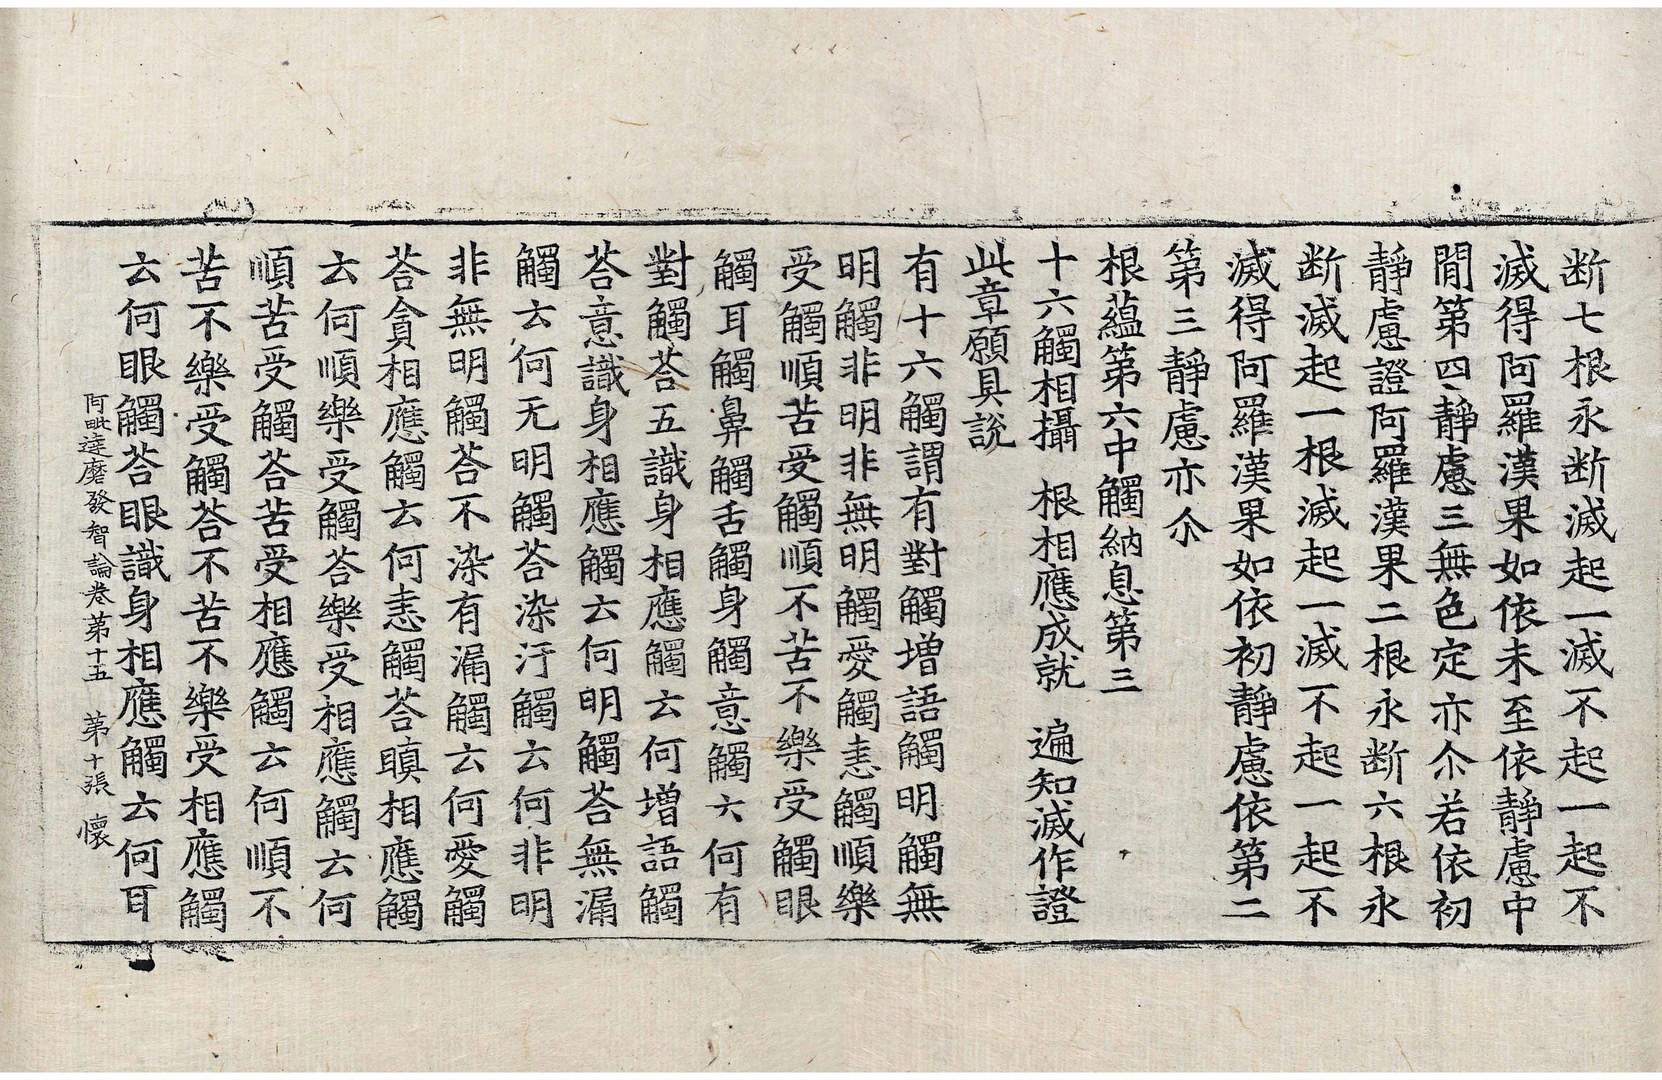 断七根永断滅起一滅不起一起不
滅得阿羅漢果如依未至依靜慮中
間第四靜慮三無色定亦尒若依初
靜慮證阿羅漢果二根永断六根永
断滅起一根滅起一滅不起一起不
滅得阿羅漢果如依初靜慮依第二
第三靜慮亦尒
根蘊第六中觸納息第三
十六觸相攝 根相應成就 遍知滅作證
此章願具說
有十六觸謂有對觸增語觸明觸無
明觸非明非無明觸愛觸恚觸順樂
受觸順苦受觸順不苦不樂受觸眼
觸耳觸鼻觸舌觸身觸意觸云何有
對觸荅五識身相應觸云何增語觸
荅意識身相應觸云何明觸荅無漏
觸云何无明觸荅染汙觸云何非明
非無明觸荅不染有漏觸云何愛觸
荅貪相應觸云何恚觸荅瞋相應觸
云何順樂受觸荅樂受相應觸云何
順苦受觸荅苦受相應觸云何順不
苦不樂受觸荅不苦不樂受相應觸
云何眼觸荅眼識身相應觸云何耳
阿毗達磨發智論卷第十五 第十張 懷